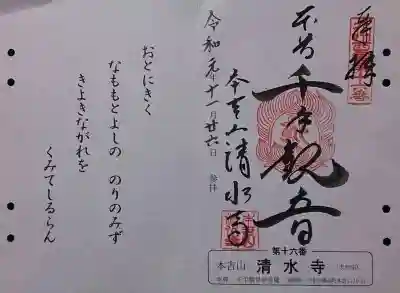 奉拝
本尊 千手観音
本吉山 清水寺
令和元年十一月廿六日 拝
おとにきく
なももとよしの のりのみず
きよきながれを
くみてしるらん
第十六番
本吉山 清水寺